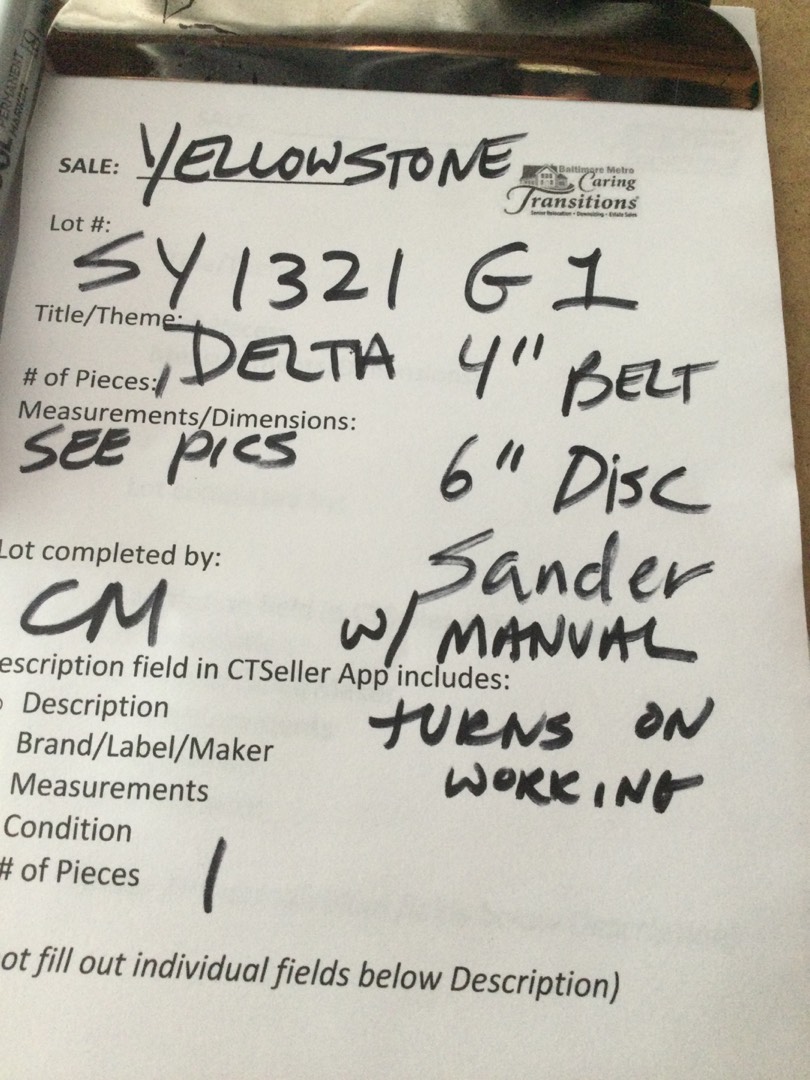 PERMANENT
MARKER
SALE: YELLOWSTONE
Baltimore Metro
Caring
Transitions
Senior Relocation • Downsizing • Estate Sales
Lot #:
SY1321 G1
Title/Theme:
DELTA 4" BELT
# of Pieces: 1
Measurements/Dimensions:
SEE PICS
6" Disc
Lot completed by:
Sander
CM
W/ MANUAL
escription field in CTSeller App includes:
Description
TURNS ON
Brand/Label/Maker
WORKING
Measurements
Condition
# of Pieces 1
ot fill out individual fields below Description)